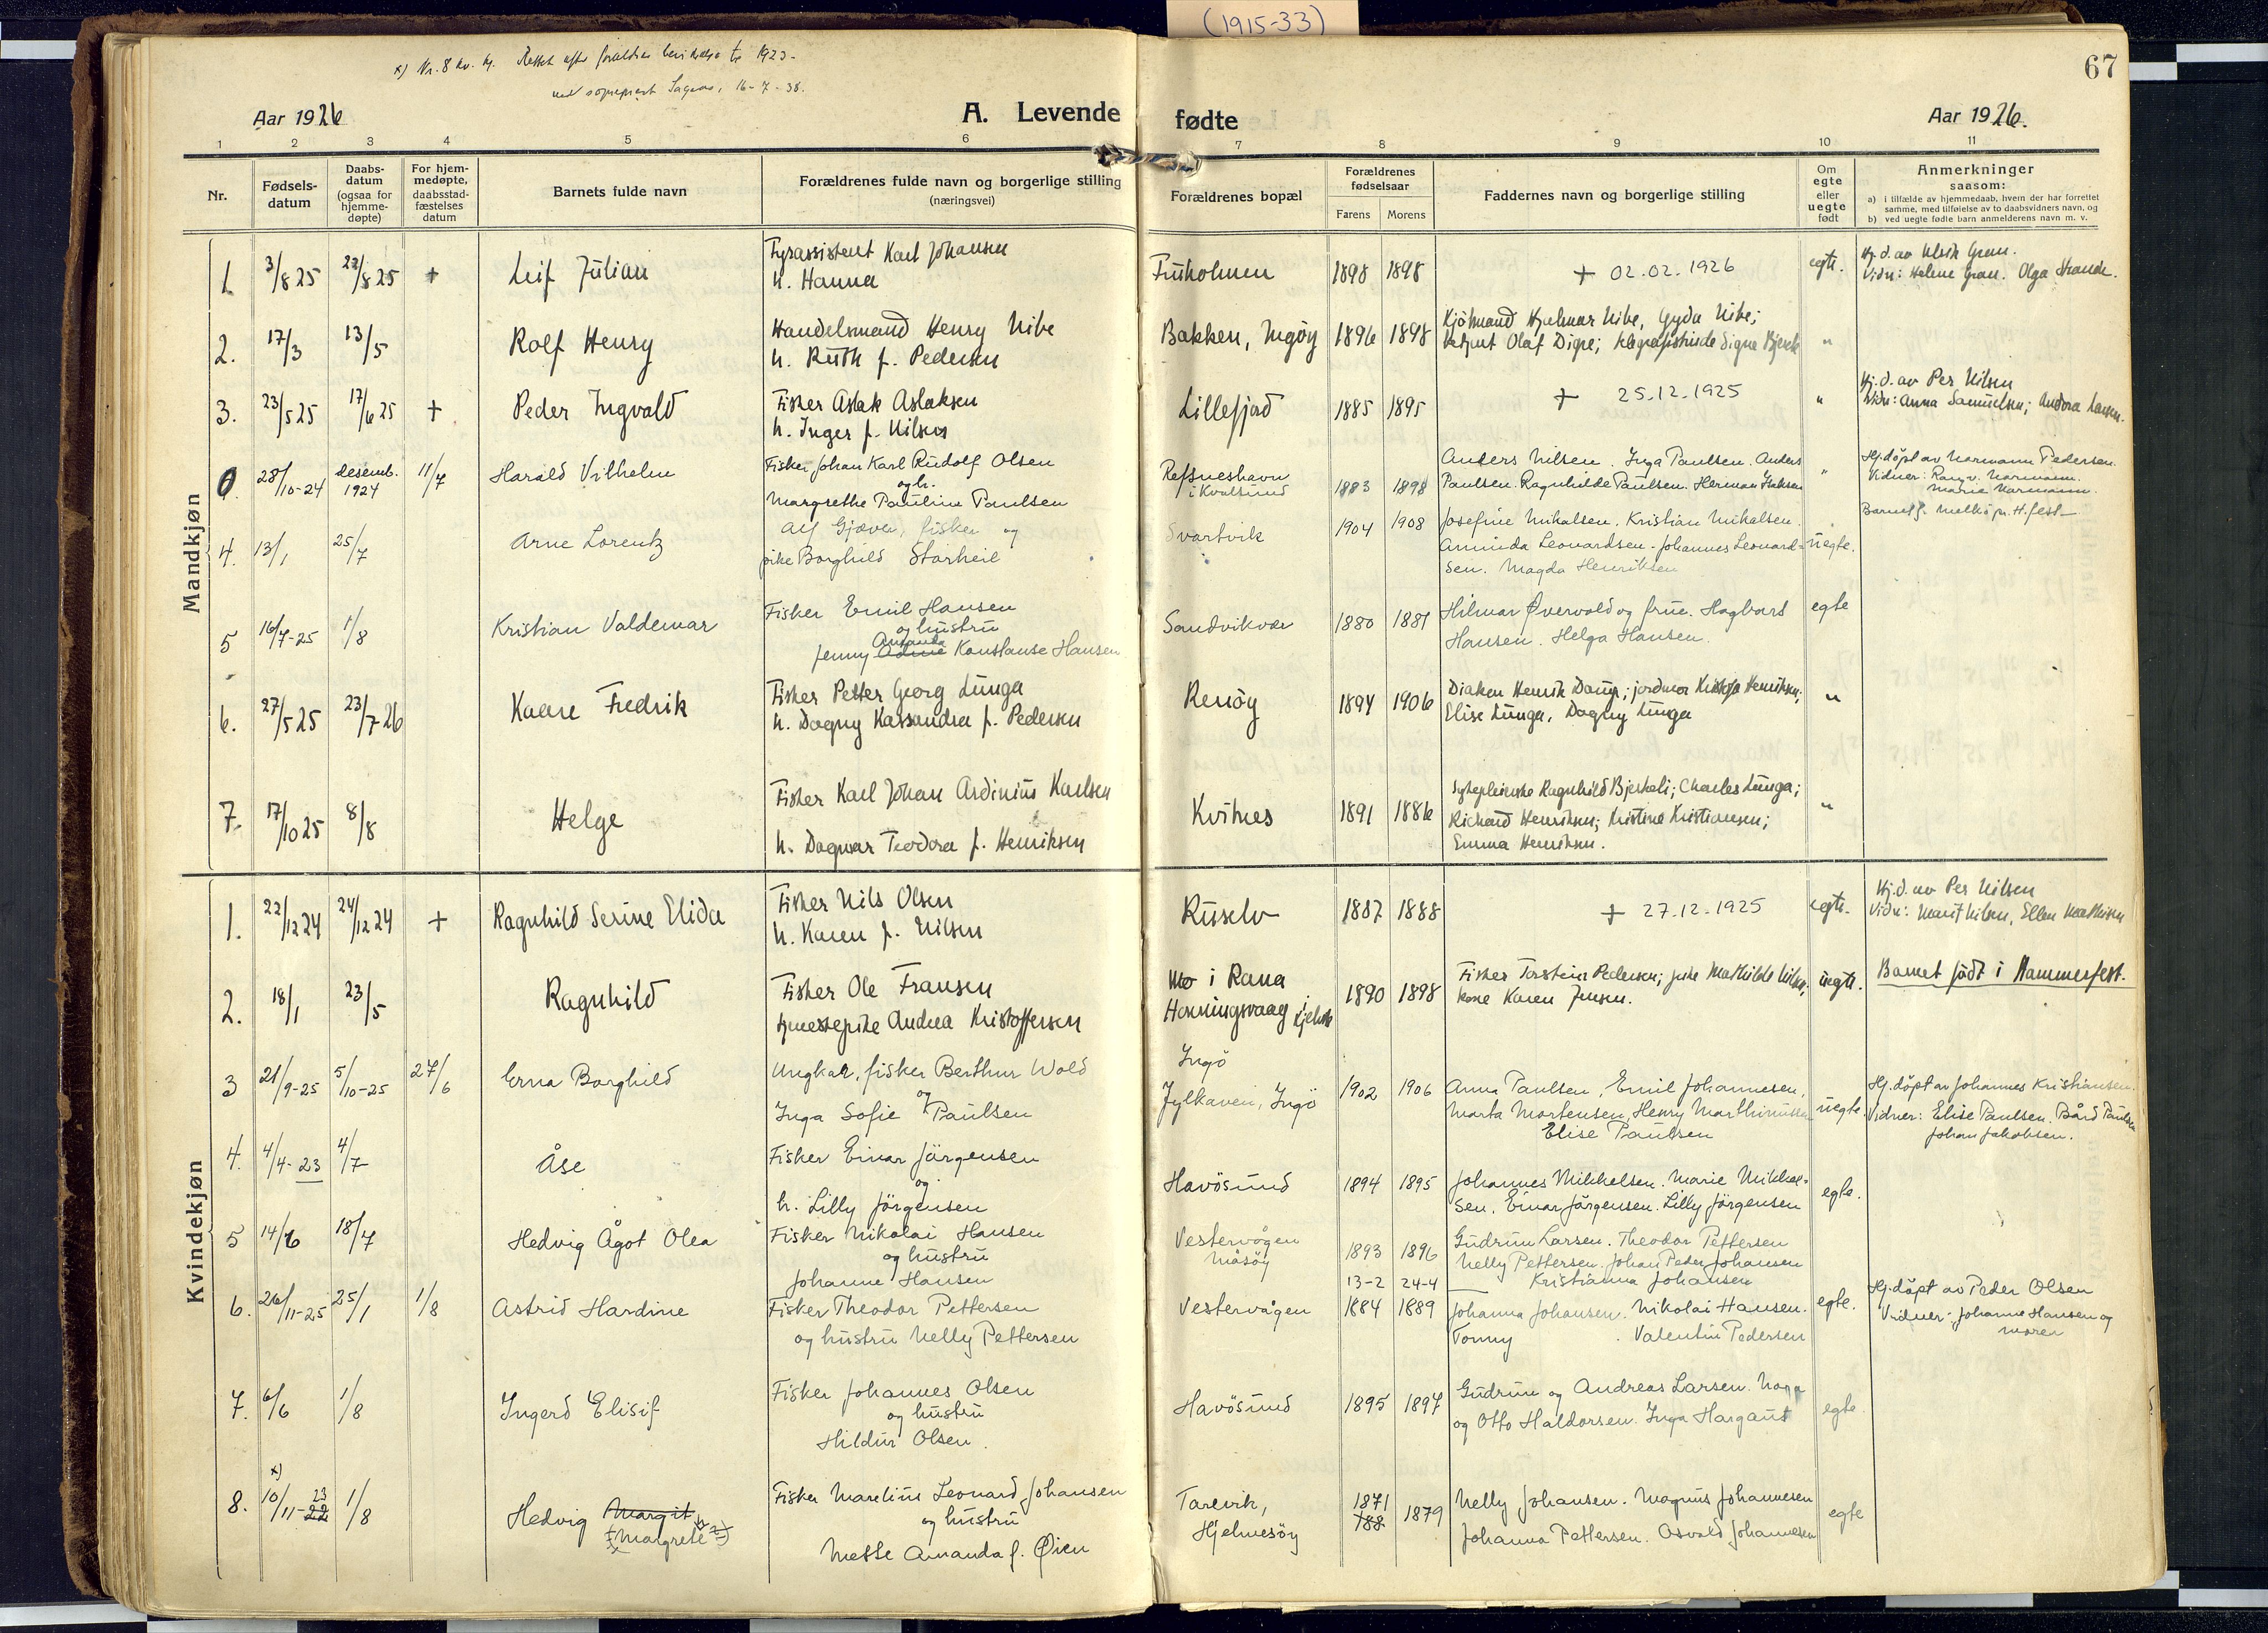 (1915-33)
67
x) Nr. 8 kv. kj. Rettet efter
1923.
16-7-38.
Aar 1926
A. Levende
fødte
Aar 1926.
1 2 3 4 5 6 7 8 9 10 11
Nr.
Fødsels-datum
Daabs-datum (ogsaa for hjemme-døpte)
For hjem-medøpte, daabsstad-fæstelses datum
Barnets fulde navn
Forældrenes fulde navn og borgerlige stilling (næringsvei)
Forældrenes bopæl
Forældrenes fødselsaar
Farens Morens
Faddernes navn og borgerlige stilling
Om egte eller uegte født
Anmerkninger saasom:
a) i tilfælde av hjemmedaab, hvem der har forrettet samme, med tilføielse av to daabsvidners navn, og
b) ved uegte fødte barn anmelderens navn m. v.
Mandkjøn
1. 3/8 25 22/8 25 + Leif Julian Fyrassistent Karl Johansen Fruholmen 1898 1898 + 02.02.1926 egte. Hj. d. av Ulrik Gran.
h. Hanna Vidn: Helene Gran. Olga Strande.
2. 17/3 13/5 Rolf Henry Handelsmand Henry Nibe Bakken, Ingøy 1896 1898 Kjøbmand Hjalmar Nibe, Gyda Nibe; "
h. Ruth f. Pedersen Olaf Digre; telegrafistinde Signe Bjerk
3. 23/5 25 17/6 25 + Peder Ingvald Fisker Aslak Aslaksen Lillefjord 1885 1895 + 25.12.1925 " Hj. d. av Per Nilsen
h. Inger f. Nilsen Vidn: Anna Samuelsen; Andora Larsen.
0 28/10-24 desemb. 1924 11/7 Harald Vilhelm Fisker Johan Karl Rudolf Olsen Refsneshavn i Kvalsund 1883 1898 Anders Nilsen. Inga Paulsen. Anders " Hj.döpt av Normann Pedersen.
og h. Paulsen. Ragnhilde Paulsen. Herman Isaksen Vidner: Ragnv. Normann.
Margrethe Pauline Paulsen Marie Normann.
4. 13/1 25/7 Arne Lorentz Alf Gjæver, fisker og Svartvik 1904 1908 Josefine Mikalsen. Kristian Mikalsen. uegte. Barnet f.
pike Borghild Storheil Aminda Leonardsen. Johannes Leonard-
sen. Magda Henriksen
5 16/7-25 1/8 Kristian Valdemar Fisker Emil Hansen Sandvikvær 1880 1881 Hilmar Øvervold og frue. Hagbart egte
og hustru Hansen. Helga Hansen.
Jenny Amanda Konstanse Hansen
6. 27/5 25 23/7 26 Kaare Fredrik Fisker Petter Georg Lunga Renöy 1894 1906 Diakon Henrik Damp; jordmor Kristofa Henriksen; "
h. Dagny Kassandra f. Pedersen Elise Lunga, Dagny Lunga
7. 17/10 25 8/8 Helge Fisker Karl Johan Ardinius Karlsen Kvitnes 1891 1886 Sykepleierske Ragnhild Bjerkeli; Charles Lunga; "
h. Dagmar Teodora f. Henriksen Richard Henriksen; Kristine Kristiansen;
Emma Henriksen.
Kvindekjøn
1. 22/12 24 24/12 24 + Ragnhild Serine Elida Fisker Nils Olsen Russelv 1887 1888 + 27.12.1925 egte. Hj. d. av Per Nilsen
h. Karen f. Nilsen Vidn: Marit Nilsen, Ellen Mathisen
2. 18/1 23/5 Ragnhild Fisker Ole Fransen Mo i Rana 1890 1898 Fisker Torstein Pedersen; pike Mathilde Nilsen; uegte. Barnet født i Hammerfest.
Andrea Kristoffersen Honningsvaag i Kjelvik kone Karen Jensen.
3 21/9-25 5/10-25 27/6 Erna Borghild Ungkar, fisker Berthur Wold Ingö 1902 1906 Anna Paulsen, Emil Johannesen, uegte. Hj.döpt av Johannes Kristiansen.
og Jylhaven, Ingö Marta Mortensen, Henry Marthinussen Vidner: Elise Paulsen. Bård Paulsen
Inga Sofie Paulsen Elise Paulsen Johan Jakobsen.
4. 4/4-23 4/7 Åse Fisker Einar Jörgensen Havösund 1894 1895 Johannes Mikkelsen. Marie Mikkel- egte.
og sen. Einar Jörgensen. Lilly Jörgensen
h. Lilly Jörgensen
5 14/6 18/7 Hedvig Ågot Olea Fisker Nikolai Hansen Vestervågen Måsöy 1893 1896 Gudrun Larsen. Theodor Pettersen
og hustru 13-2 24-4 Nelly Pettersen. Johan Peder Johansen
Johanne Hansen Kristianna Johansen
6. 26/11-25 25/1 1/8 Astrid Hardine Fisker Theodor Pettersen Vestervågen 1884 1889 Johanna Johansen. Nikolai Hansen. egte. Hj.döpt av Peder Olsen
og hustru Nelly Pettersen Tonny . Valentin Pedersen Vidner: Johanne Hansen og
moren
7. 6/6 1/8 Ingerd Elisif Fisker Johannes Olsen Havösund 1895 1897 Gudrun og Andreas Larsen. egte.
og hustru og Otto Haldorsen. Inga Hargaut
Hildur Olsen.
8. x) 10/11-22 23 1/8 Hedvig Margit Fisker Marelius Leonard Johansen Tarevik, 1871 188 1879 Nelly Johansen. Magnus Johannesen egte
Margrete og hustru Hjelmesöy Johanna Pettersen. Osvald Johannesen
Mette Amanda f. Øien